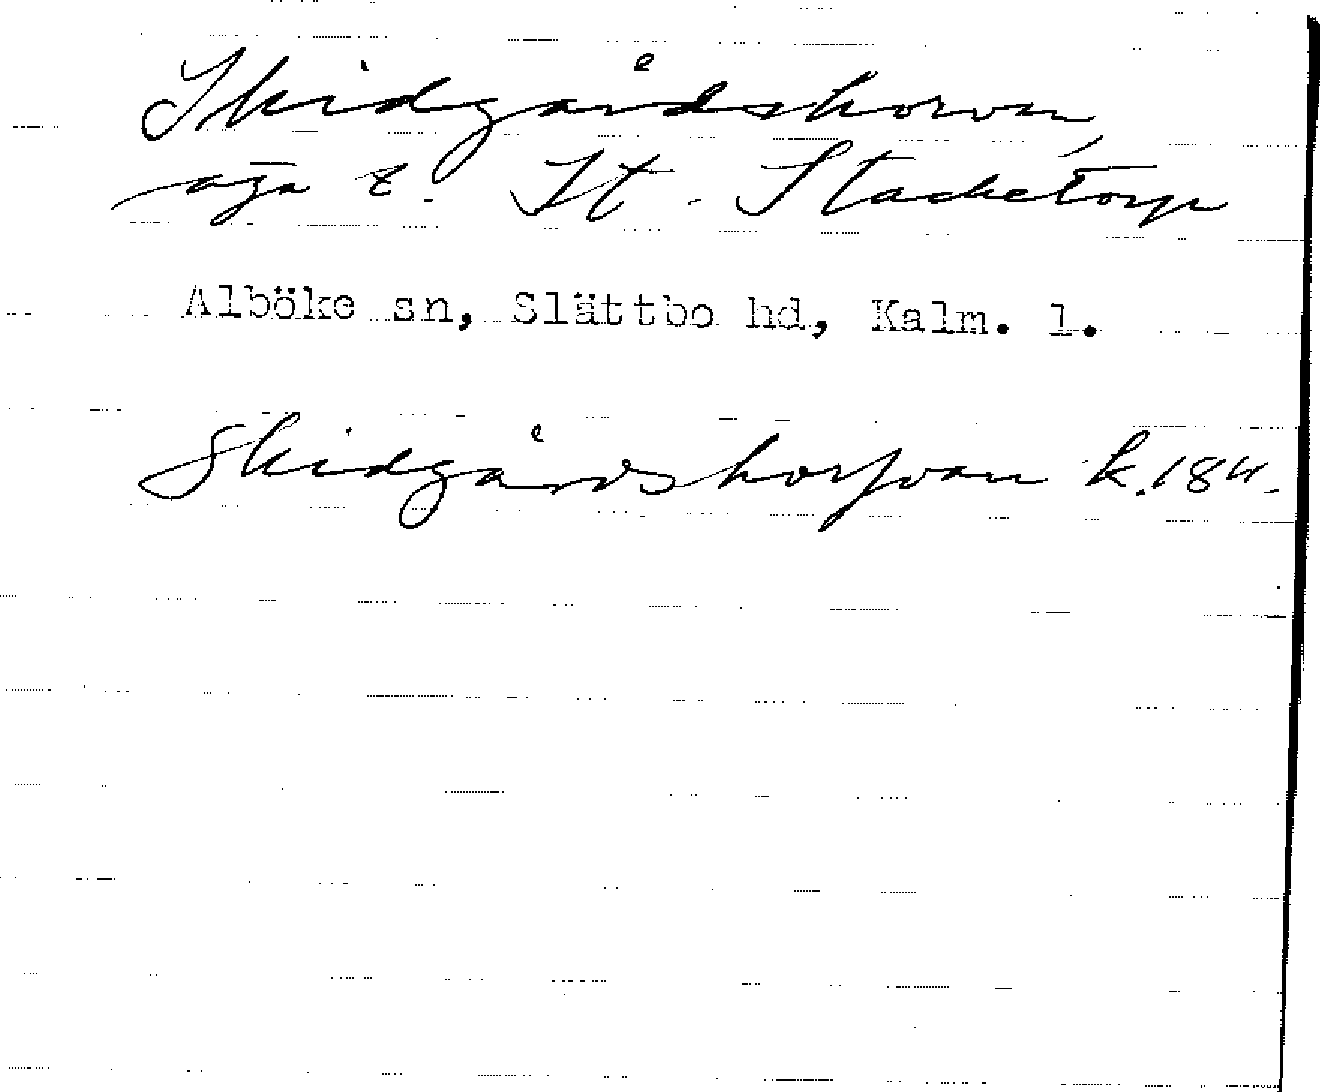 Skidgårdshorvan,
äga t. St. Stacketorp
Alböke sn, Slättbo hd, Kalm. l.
Skidgårdshorfvan k. 1811.